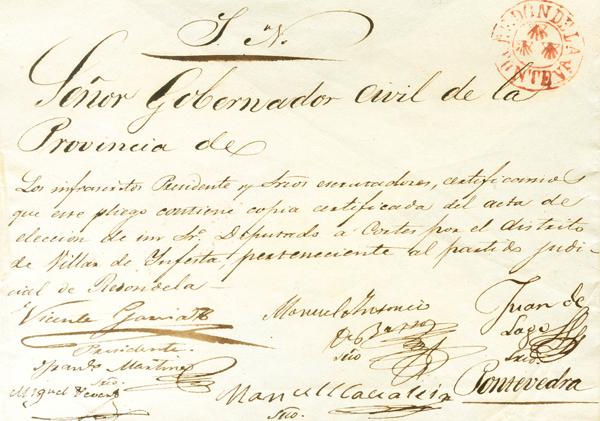 S. N.
REDONDELA
PONTEV
Señor Gobernador Civil de la
Provincia de
Los infrascritos Presidente y Srios escrutadores, certificamos
que este pliego contiene copia certificada del acta de
elección de un Sr. Diputado a Cortes por el distrito
de Villar de Infesta, perteneciente al partido judi-
cial de Redondela
Vicente Garcia
Presidente.
Manuel Antonio
Srio
Juan de
Lago
Srio.
Martinez
Srio.
Miguel
Manuel
Srio.
Pontevedra